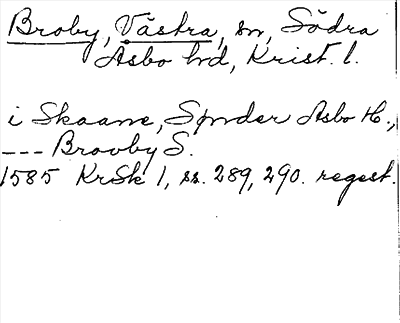 Broby, Västra, sn, Södra
Åsbo hd, Krist. l.
i Skaane, Sønder Asbo H.,
--- Brouby S.
1585 KrSk 1, ss. 289, 290. regest.